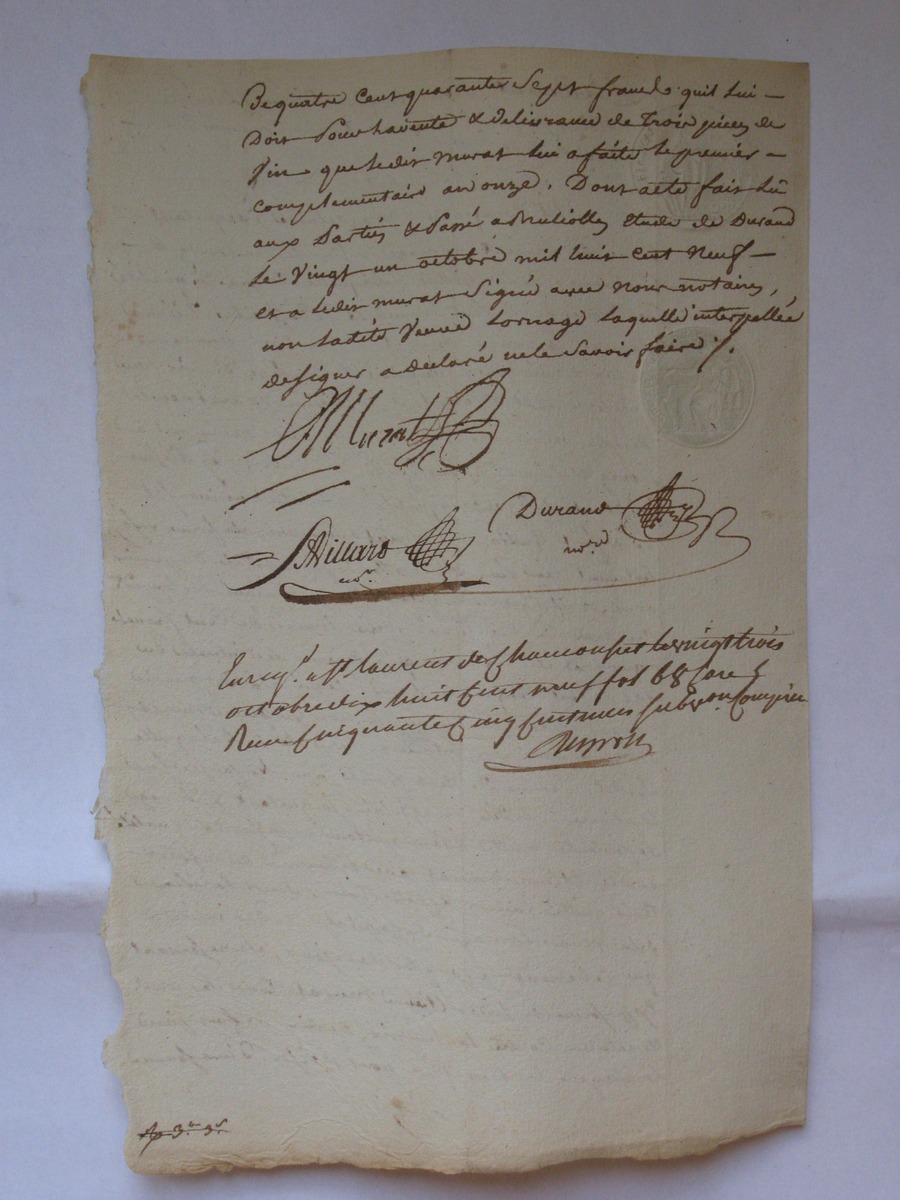 De quatre cent quarante Sept francs quil lui –
Doit Pour lavente & delivrance de Trois pieces de
Vin que ledit murat lui a faite le premier –
complementaire an onze. Dont acte fait lû
aux Parties & Passé a etude de Durand
Le Vingt un octobre mil huit cent Neuf –
et a ledit murat Signé avec Nous notaires,
non ladite Veuve Lornage laquelle interpellée
designer a declaré ne le Savoir faire /.
Murat
Durand
Villard
nore
Enregé. a St laurent de Chamousset le vingt trois
octobre dix huit Cent neuf fol 68
Reçu Cinquante Cinq Centimes Subvon Comprise